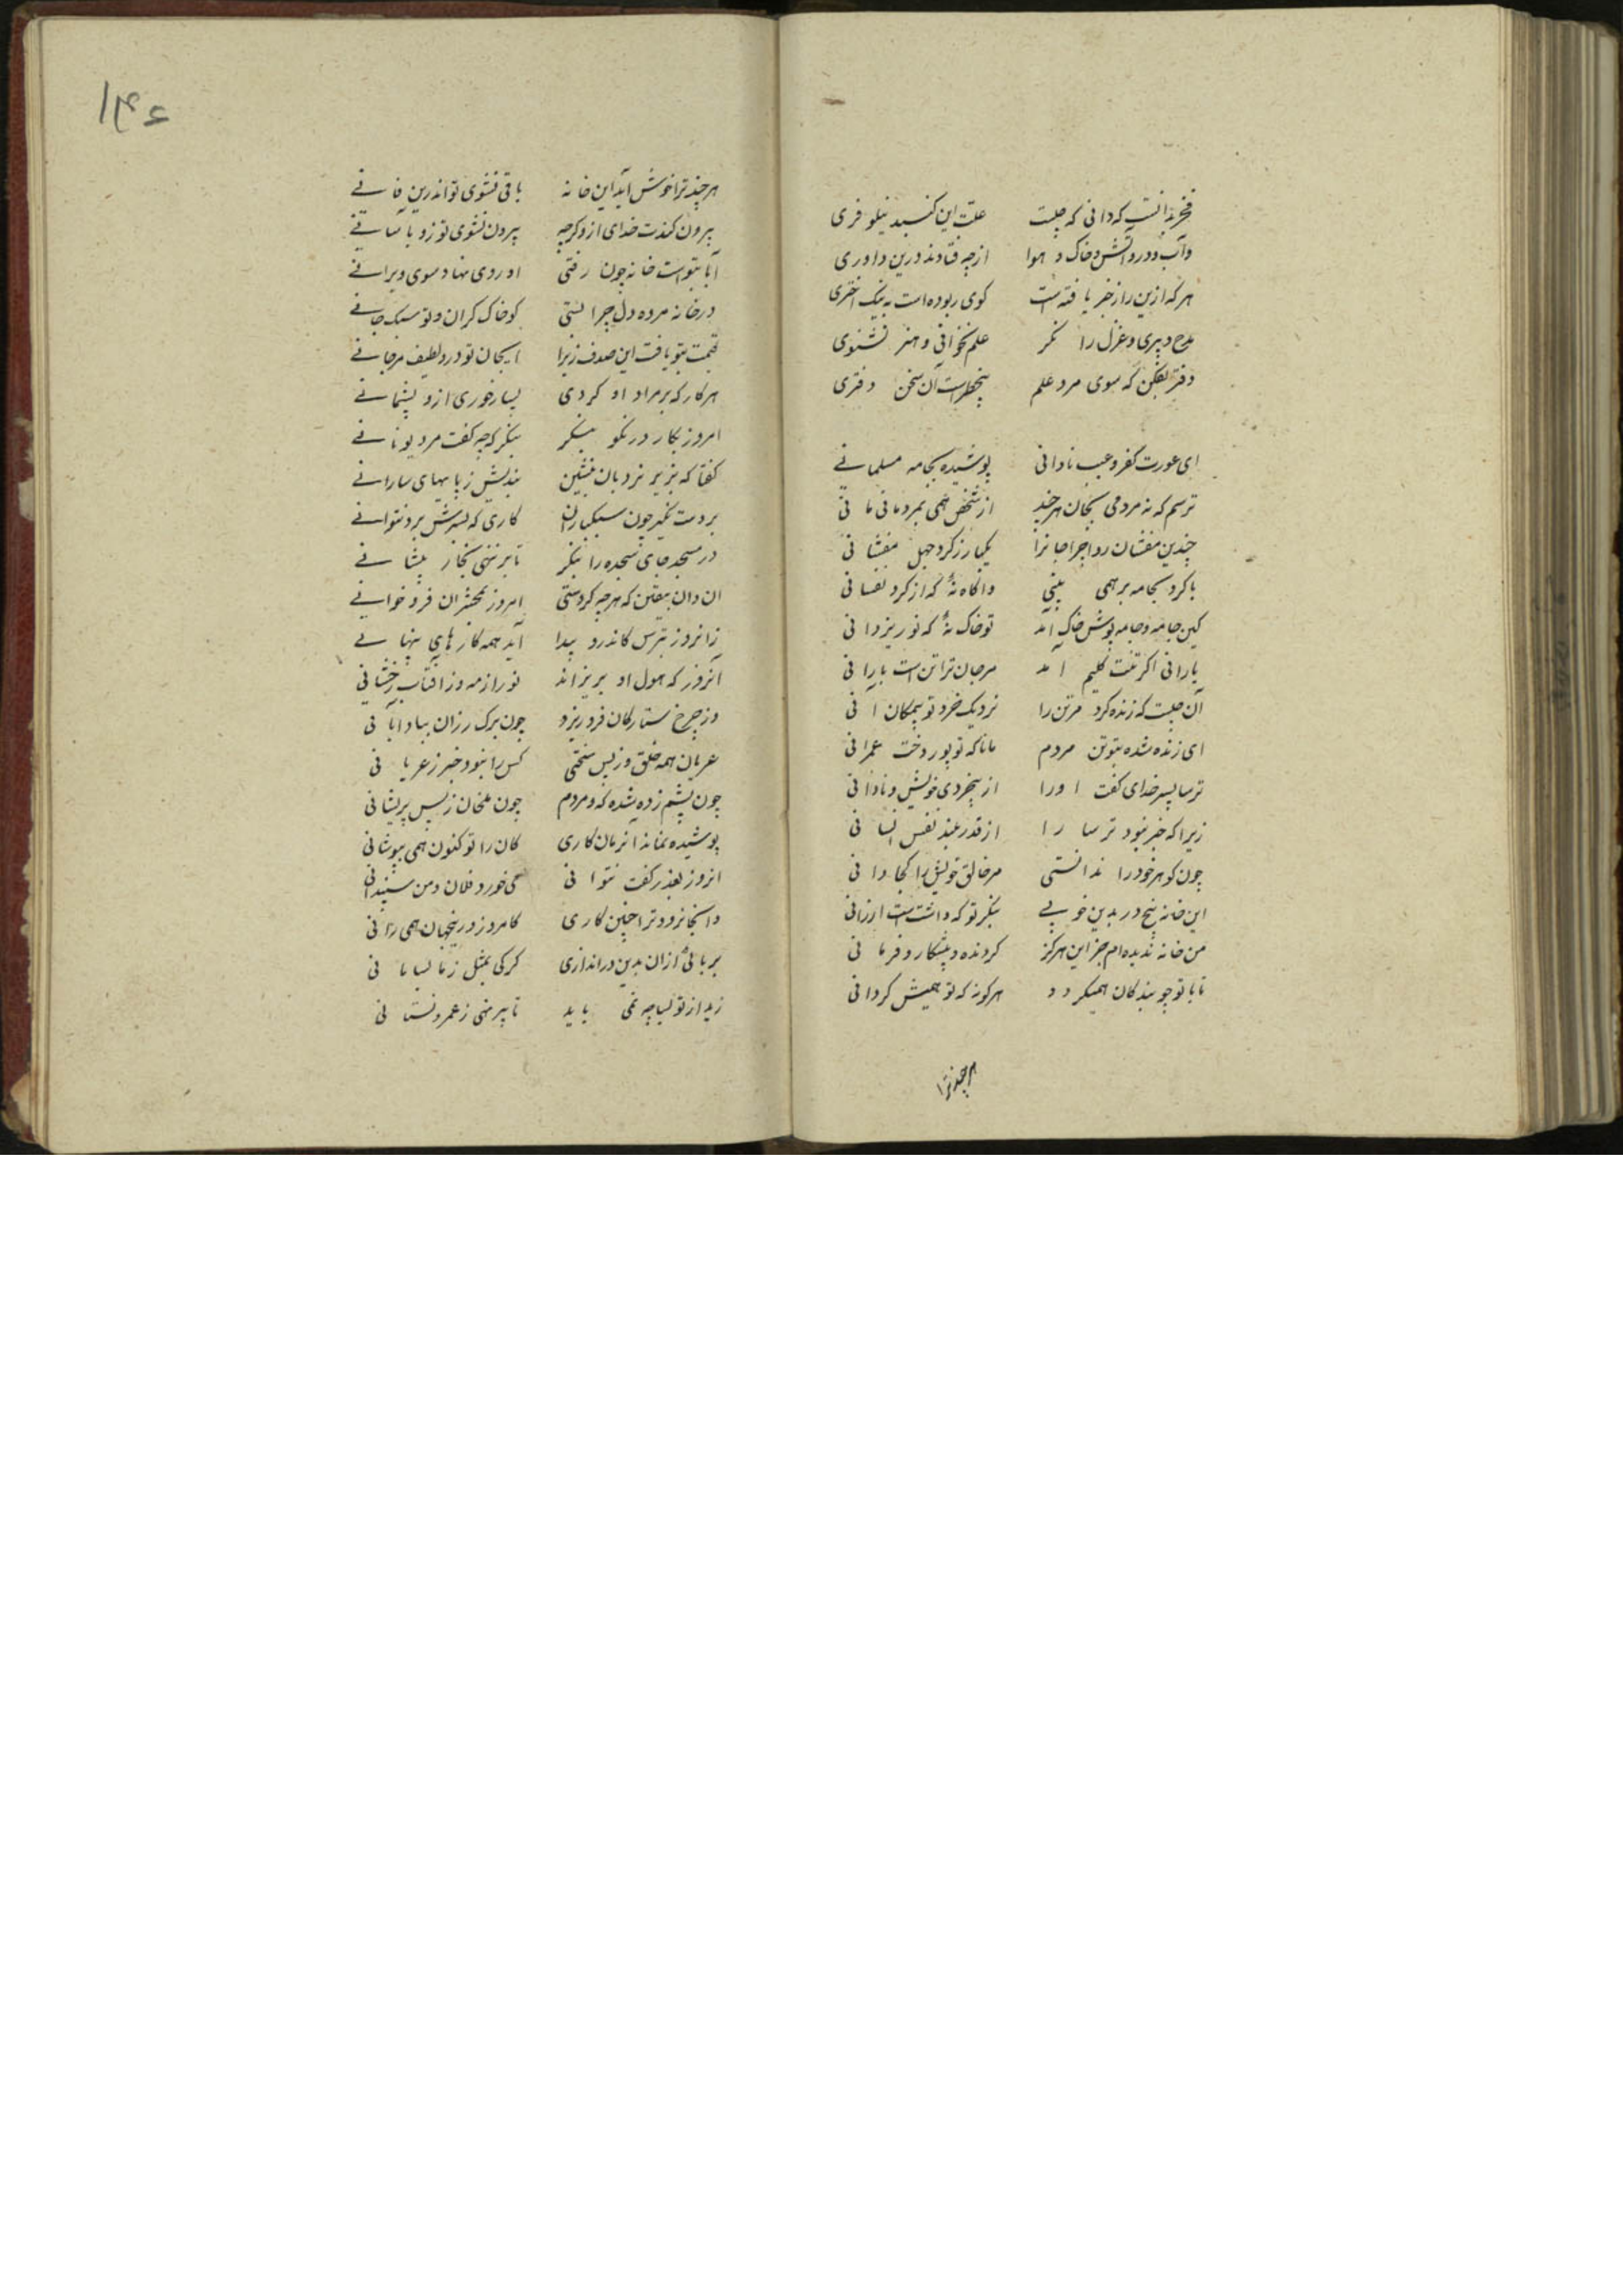 فخر بدانست که دانی که چیست علت این کنبد نیلوفری
واب و درو آتش و خاک و هوا ازچه فتادند درین داوری
هرکه ازین راز خبر یافته است کوی ربوده است به نیک اختری
مدح و دبیری و غزل را نکر علم نخوانی و هنر نشنوی
دفتر بفکن که سوی مرد علم بیخطرست آن سخن دفتری
ای عورت کفر و عیب نادانی پوشیده بجامه مسلمانے
ترسم که نه مردمی بجان هرچند از شخص همی بمردمانی مانی
چندین مفشان ردا چرا جانرا یکبار ز کرد جهل مفشانی
با کرد بجامه بر همی بینی واکاه نهٔ که از کرد نفسانی
کین جامه و جامه پوش خاک آمد تو خاک نهٔ که نور یزدانی
بارانی اکر تنت کلیم آمد مر جان ترا تن است بارانی
آن چیست که زنده کرد مر تن را نزدیک خرد تو بیمکان آنی
ای زنده شده بتو تن مردم مانا که تو پور دخت عمرانی
ترسا پسر خدای کفت اورا از بیخردی خویش و نادانی
زیرا که خبر نبود ترسا را از قدر بلند نفس انسانی
چون کوهر خود را ندانستی مر خالق خویش را کجا دانی
این خانه پنج در بدین خوبے بنکر تو که داشت است ارزانی
من خانه ندیده ام جز این هرکز کردنده و پیشکار و فرمانی
تا با تو چو بندکان همیکردد هرکونه که تو همیش کردانی
هرچند ترا
۱۴۶
هرچند ترا خوش آید این خانه باقی نشوی تو اندرین فانے
بیرون کندت خدای ازو کرچه بیرون نشوی تو زو باسانے
آباد بتو است خانه چون رفتی او روی نهاد سوی ویرانے
در خانه مرده دل چرا بستی کو خاک کران و تو سبک جانے
قیمت بتو یافت این صدف زیرا ایجان تو درو لطیف مرجانے
هر کار که بر مراد او کردی بسیار خوری ازو پشیمانے
امروز بکار در نکو بنکر بنکر که چه کفت مرد یونانے
کفتا که بزیر نردبان منشین بندیش ز پایهای سارانے
بر دست مکیر چون سبکباران کاری که بسرش برد نتوانے
در مسجد جای سجده را بنکر تا بر ننهی بخار پیشانے
ان دان بیقین که هرچه کردستی امروز بمحشر ان فرو خوانے
زانروز بترس کاندرو پیدا آید همه کارهای پنهانے
آنروز که هول او بریزاند نور از مه و ز افتاب رخشانی
وز چرخ ستارکان فرو ریزد چون برک رزان بباد ابانی
عریان همه خلق و ز بس سختی کس را نبود خبر ز عریانی
چون پشم زده شده که و مردم چون ملخان ز بس پریشانی
پوشیده نماند آنزمان کاری کان را تو کنون همی بپوشانی
انروز بعذر کفت نتوانی می خورد فلان و من سپندانی
وانجا نرود ترا چنین کاری کامروز درینجهان همی رانی
بربائی ازان بدین دراندازی کرکی بمثل ز نابسامانی
زید از تو لباچه نمی یابد تا پیرهنی ز عمرو نستانی